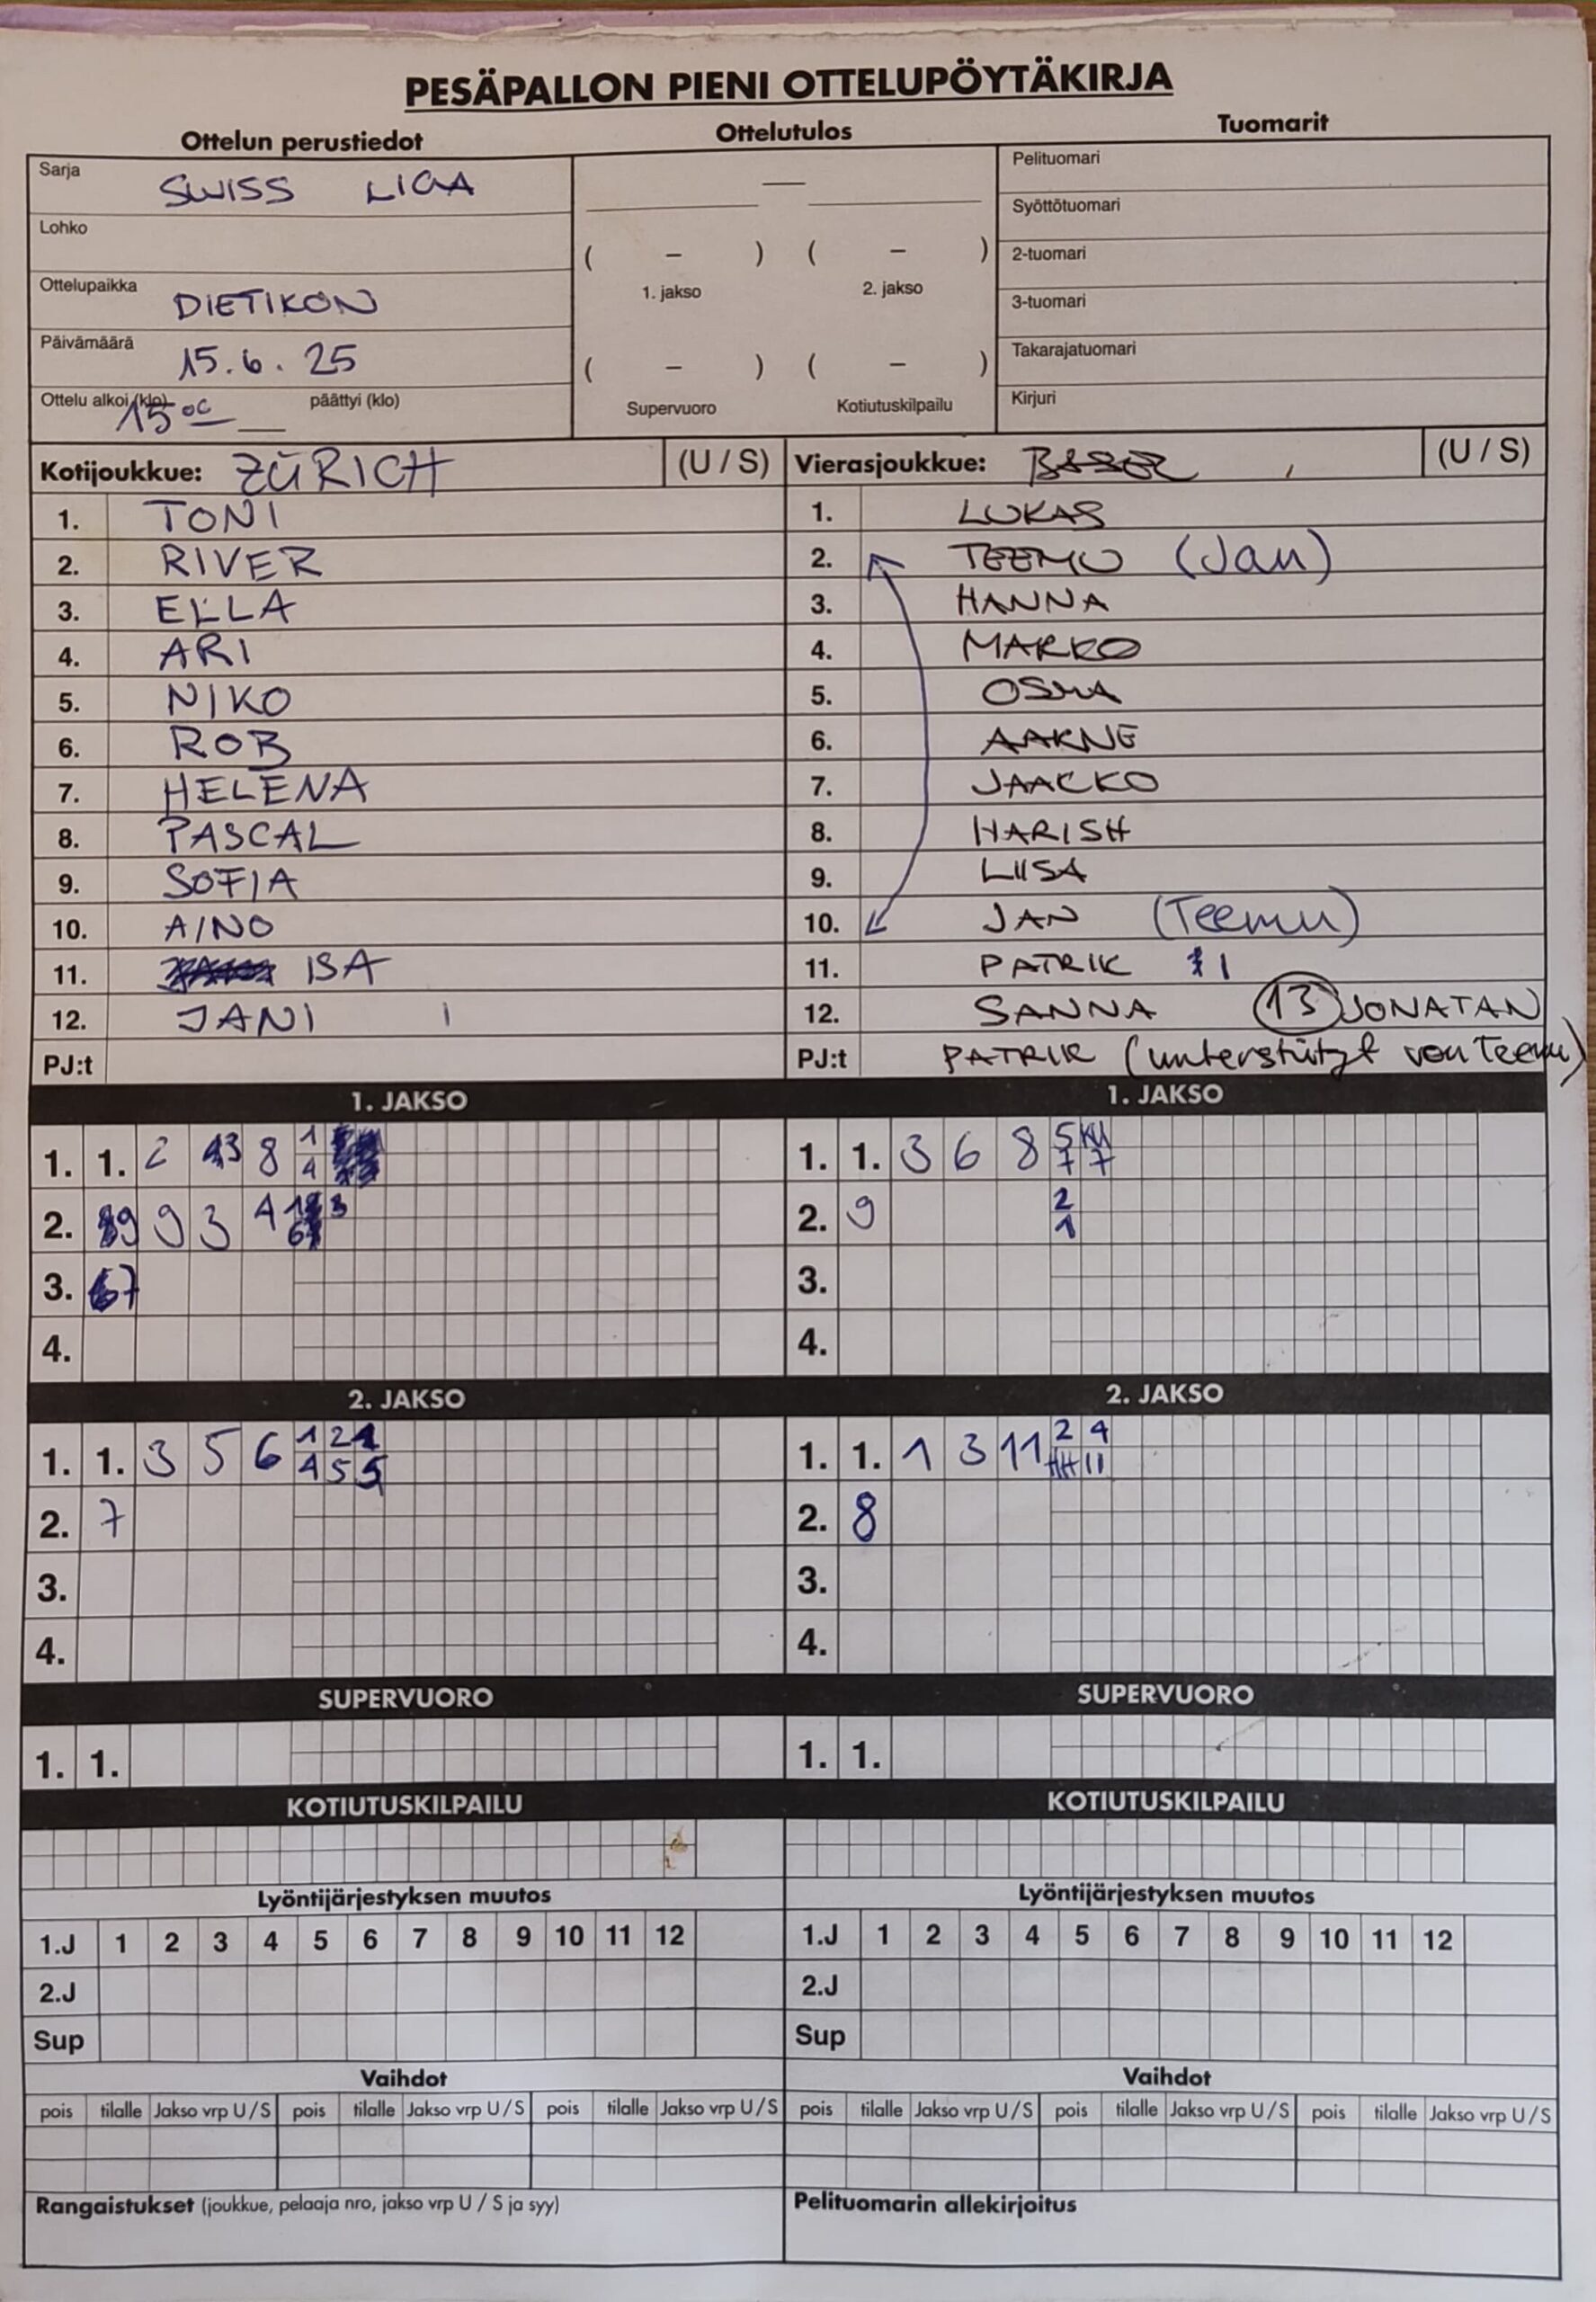 PESÄPALLON PIENI OTTELUPÖYTÄKIRJA
Ottelun perustiedot
Ottelutulos
Tuomarit
Sarja SWISS LIGA
Lohko
Ottelupaikka DIETIKON
Päivämäärä 15.6.25
Ottelu alkoi (klo) 15 päättyi (klo)
—
( – ) ( – )
1. jakso 2. jakso
( – ) ( – )
Supervuoro Kotiutuskilpailu
Pelituomari
Syöttötuomari
2-tuomari
3-tuomari
Takarajatuomari
Kirjuri
Kotijoukkue: ZÜRICH (U / S)
1. TONI
2. RIVER
3. ELLA
4. ARI
5. NIKO
6. ROB
7. HELENA
8. PASCAL
9. SOFIA
10. AINO
11. ISA
12. JANI 1
PJ:t
Vierasjoukkue: (U / S)
1. LUKAS
2. TEEMU (Jan)
3. HANNA
4. MARKO
5. OSMA
6. AAKNE
7. JAACKO
8. HARISH
9. LIISA
10. JAN (Teemu)
11. PATRIK 1
12. SANNA 13 JONATAN
PJ:t PATRIK (unterstützt von Teemu)
1. JAKSO
1. 1. 2 8 1
4
2. 9 9 3 4
3. 7
4.
1. JAKSO
1. 1. 3 6 8 5
7 7
2. 9 2
1
3.
4.
2. JAKSO
1. 1. 3 5 6 1 2
4 5 5
2. 7
3.
4.
2. JAKSO
1. 1. 1 3 11 2 4
2. 8
3.
4.
SUPERVUORO
1. 1.
SUPERVUORO
1. 1.
KOTIUTUSKILPAILU
Lyöntijärjestyksen muutos
1.J 1 2 3 4 5 6 7 8 9 10 11 12
2.J
Sup
KOTIUTUSKILPAILU
Lyöntijärjestyksen muutos
1.J 1 2 3 4 5 6 7 8 9 10 11 12
2.J
Sup
Vaihdot
pois tilalle Jakso vrp U / S pois tilalle Jakso vrp U / S pois tilalle Jakso vrp U / S
Vaihdot
pois tilalle Jakso vrp U / S pois tilalle Jakso vrp U / S pois tilalle Jakso vrp U / S
Rangaistukset (joukkue, pelaaja nro, jakso vrp U / S ja syy)
Pelituomarin allekirjoitus